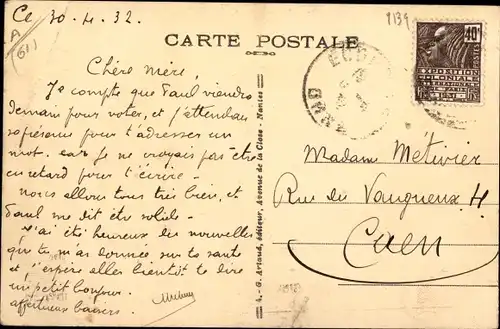 Ce 30-4.32.
A
(61)
CARTE POSTALE
Chère mère,
Je compte que Paul viendra
demain pour voter, et j'attendais
sa présence pour t'adresser un
mot. car je ne croyais pas être
en retard pour t'écrire.
nous allons tous très bien, et
Paul me dit être solide.
J'ai été heureux des nouvelles
que tu m'as données sur ta santé
et j'espère bientôt te dire
un petit bonjour.
affectueux baisers
4. - G. Artaud, éditeur, Avenue de la Close - Nantes
40c
EXPOSITION
COLONIALE
INTERNATIONALE
PARIS
POSTES
Madame Métivier
Rue du Vaugueux 4
Caen